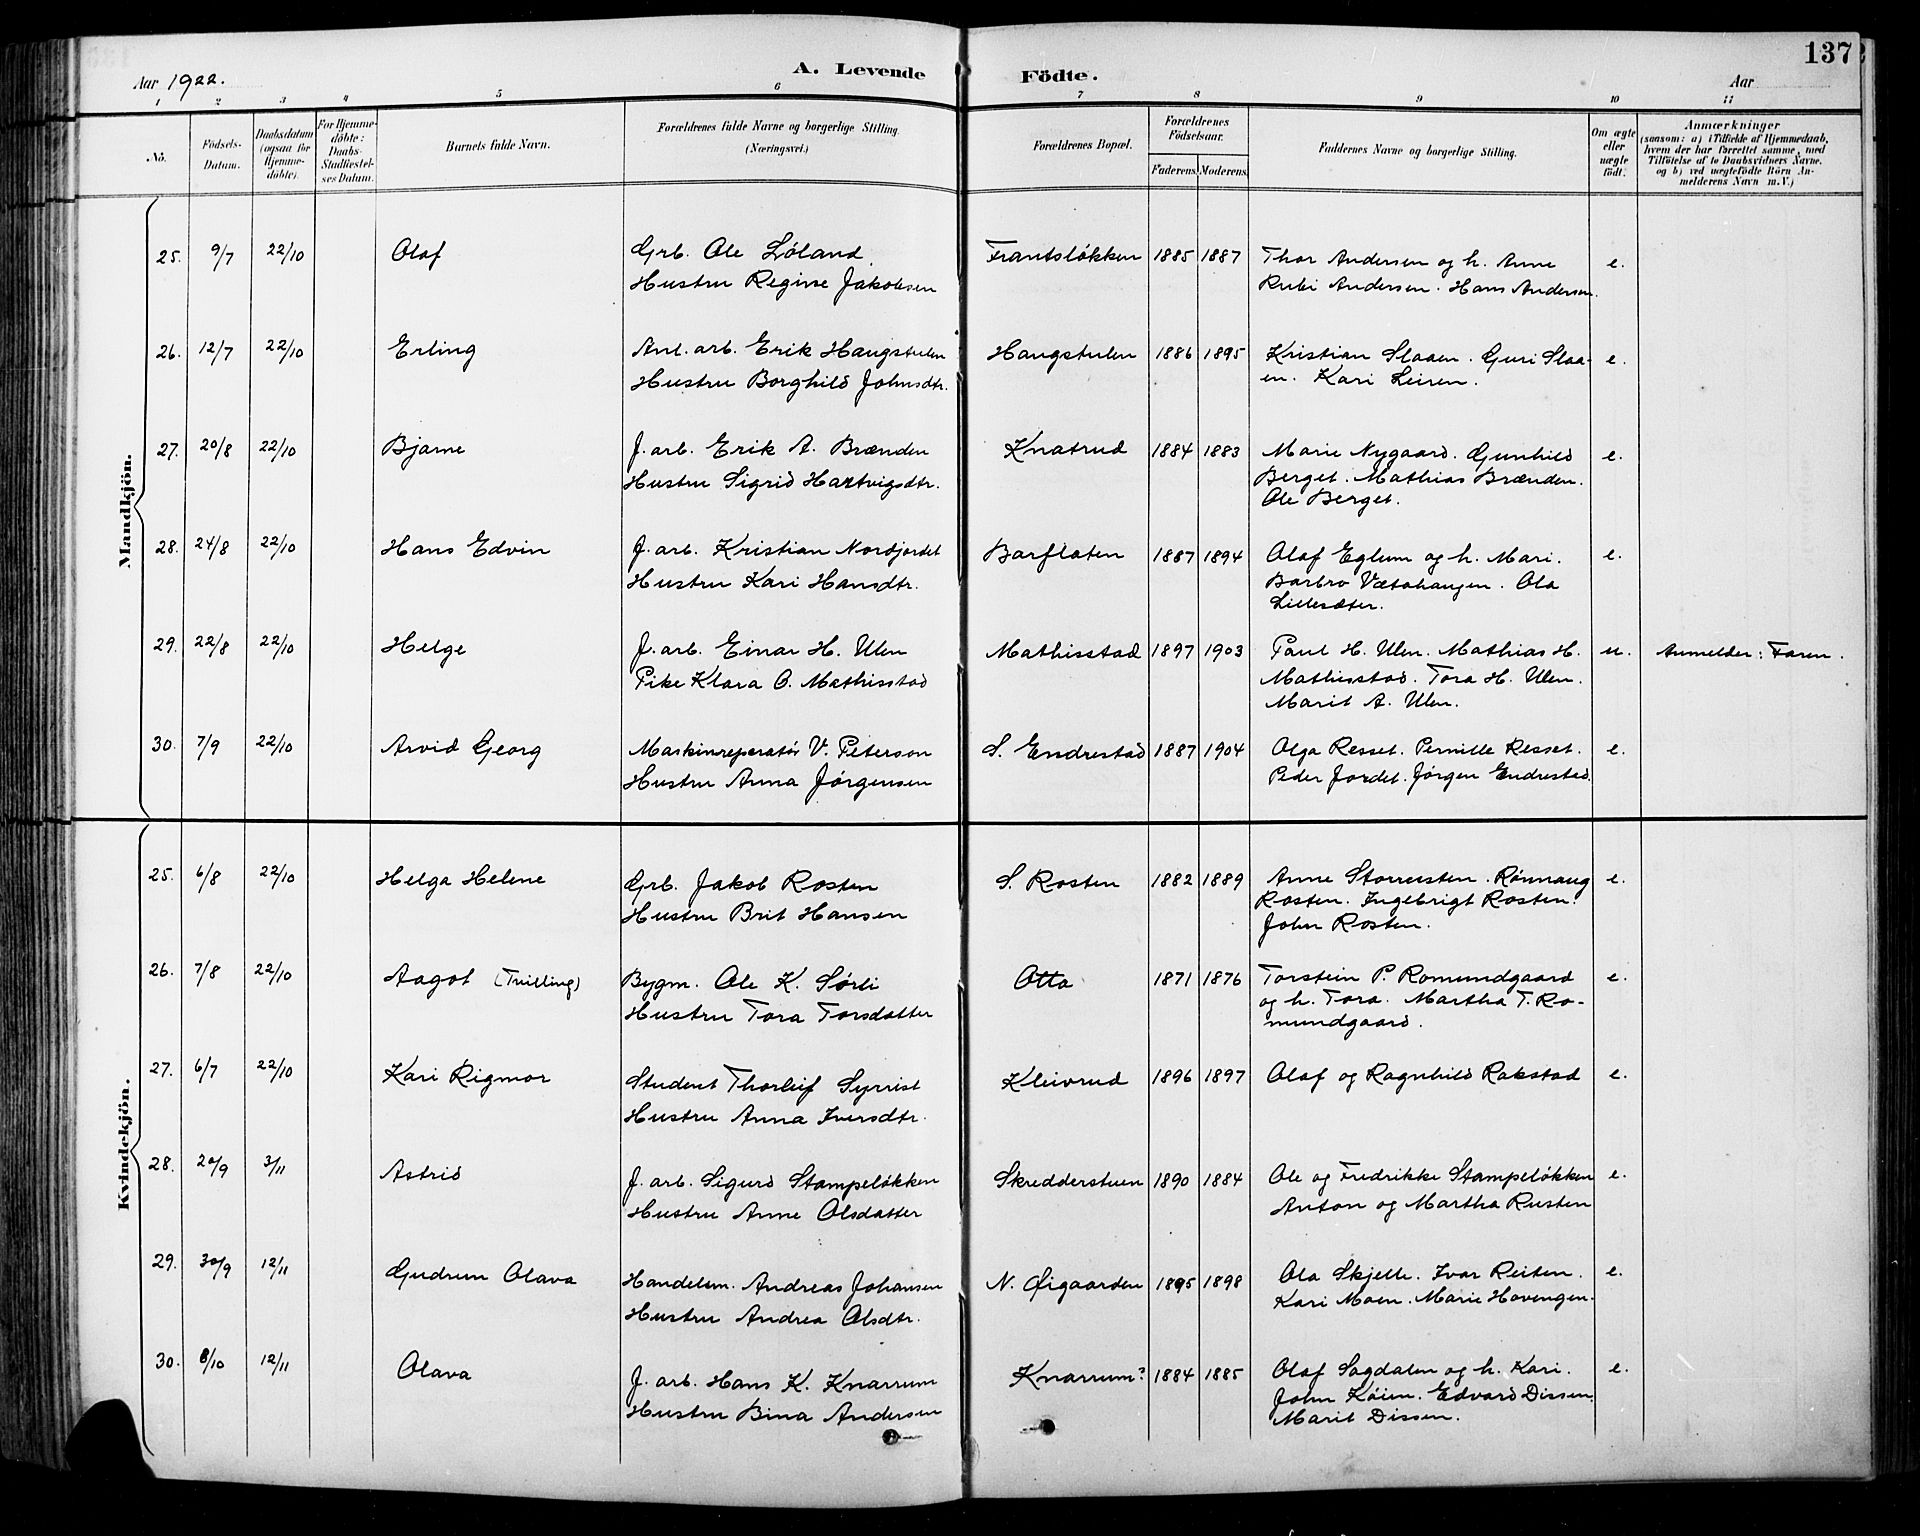 137
Aar 1922.
A. Levende Födte.
Aar
1 2 3 4 5 6 7 8 9 10 11
No.
Födsels-Datum.
Daabsdatum (ogsaa for Hjemmedöbte).
For Hjemmedöbte: Daabs-Stadfæstelses Datum.
Barnets fulde Navn.
Forældrenes fulde Navne og borgerlige Stilling. (Næringsvei.)
Forældrenes Bopæl.
Forældrenes Födselsaar.
Faderens. Moderens.
Faddernes Navne og borgerlige Stilling.
Om ægte eller uægte födt.
Anmærkninger
(saasom: a) i Tilfælde af Hjemmedaab, hvem der har forrettet samme, med Tilföielse af to Daabsvidners Navne, og b) ved uægtefödte Börn Anmelderens Navn m.V.)
Mandkjön.
25. 9/7 22/10 Olaf Grb. Ole Løland. Frantsløkken 1885 1887 Thor Andersen og h. Anne e.
Hustru Regine Jakobsen Rubi Andersen. Hans Andersen.
26. 12/7 22/10 Erling Anl. arb. Erik Haugstulen Haugstulen 1886 1895 Kristian Slaaen. Guri Slaa- e.
Hustru Borghild Johnsdtr. en. Kari Leiren.
27. 20/8 22/10 Bjarne J. arb. Erik A. Brænden Knatrud 1884 1883 Marie Nygaard. Gunhild e.
Hustru Sigrid Hartvigsdtr. Berget. Mathias Brænden.
Ole Berget.
28. 24/8 22/10 Hans Edvin J. arb. Kristian Nordjordet Barflaten 1887 1894 Olaf Eglum og h. Mari. e.
Hustru Kari Hansdtr. Barbro Vætahaugen. Ola
Lillesæter.
29. 22/8 22/10 Helge J. arb. Einar H. Ulen Mathisstad 1897 1903 Paul H. Ulen. Mathias H. u. Anmelder: Faren.
Pike Klara O. Mathisstad Mathisstad. Tora H. Ulen.
Marit A. Ulen.
30. 7/9 22/10 Arvid Georg Maskinreperatør V. Peterson S. Endrestad 1887 1904 Olga Resset. Pernille Resset. e.
Hustru Anna Jørgensen Peder Jordet. Jørgen Endrestad.
Kvindekjön.
25. 6/8 22/10 Helga Helene Grb. Jakob Rosten S. Rosten 1882 1889 Anne Storrusten. Rønnaug e.
Hustru Brit Hansen Rosten. Ingebrigt Rosten.
John Rosten.
26. 7/8 22/10 Aagot (Tvilling) Bygm. Ole K. Sørli Otta 1871 1876 Torstein P. Romundgaard e.
Hustru Tora Torsdatter og h. Tora. Martha T. Ro-
mundgaard.
27. 6/7 22/10 Kari Rigmor Student Thorleif Syrrist Kleivrud 1896 1897 Olaf og Ragnhild Rakstad e.
Hustru Anna Iversdtr.
28. 20/9 3/11 Astrid J. arb. Sigurd Stampeløkken Skredderstuen 1890 1884 Ole og Fredrikke Stampeløkken e.
Hustru Anne Olsdatter Anton og Martha Rusten
29. 30/9 12/11 Gudrun Olava Handelsm. Andreas Johansen N. Øigaarden 1895 1898 Ola Skjelle. Ivar Reiten. e.
Hustru Andrea Olsdtr. Kari Moen. Marie Hovengen.
30. 8/10 12/11 Olava J. arb. Hans K. Knarrum Knarrum? 1884 1885 Olaf Sagdalen og h. Kari. e.
Hustru Bina Andersen John Køien. Edvard Dissen.
Marit Dissen.